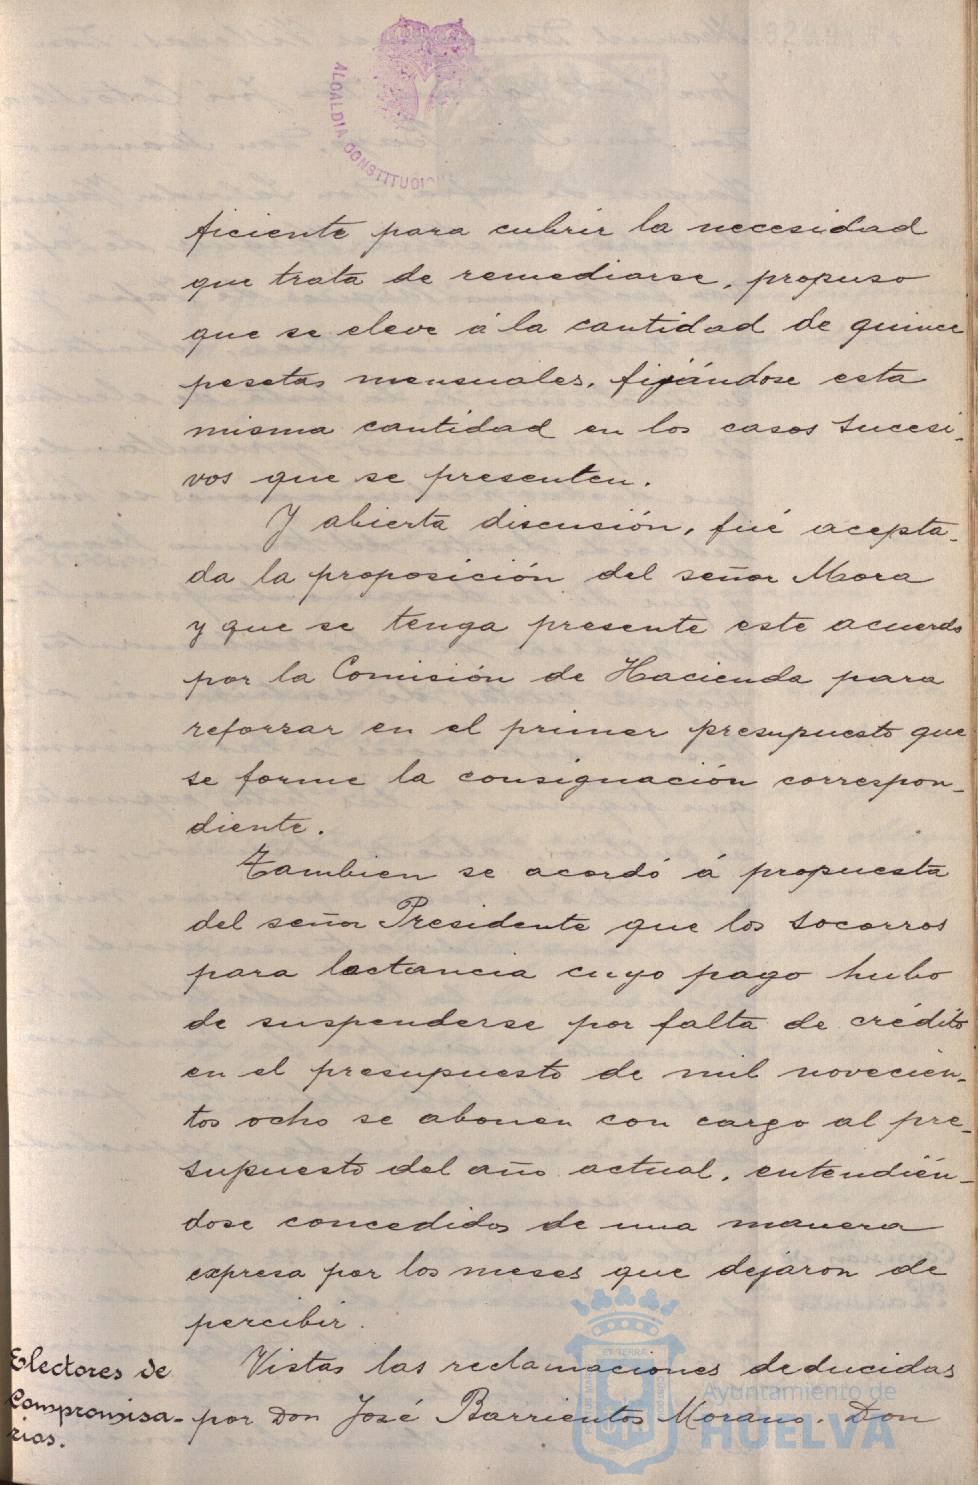 ALCALDIA CONSTITUCIO
ficiente para cubrir la necesidad
que trata de remediarse, propuso
que se eleve á la cantidad de quince
pesetas mensuales, fijándose esta
misma cantidad en los casos sucesi-
vos que se presenten.
Y abierta discusión, fué acepta-
da la proposición del señor Mora
y que se tenga presente este acuerdo
por la Comisión de Hacienda para
reforzar en el primer presupuesto que
se forme la consignación correspon-
diente.
Tambien se acordó á propuesta
del señor Presidente que los socorros
para lactancia cuyo pago hubo
de suspenderse por falta de crédito
en el presupuesto de mil novecien-
tos ocho se abonen con cargo al pre-
supuesto del año actual, entendién-
dose concedidos de una manera
expresa por los meses que dejaron de
percibir.
Electores de
Compromisa-
rios.
Vistas las reclamaciones deducidas
por Don José Barrientos Morano, Don
Ayuntamiento de
HUELVA